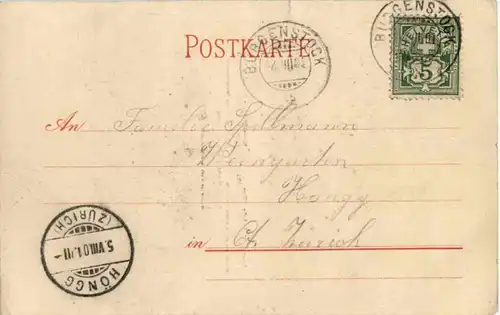 POSTKARTE
BÜRGENSTOCK
BÜRGENSTOCK
HELVETIA
5
An Familie Spillmann
Weingarten
Höngg
in Ct. Zürich
HÖNGG
(ZÜRICH)
5.VIII.01.